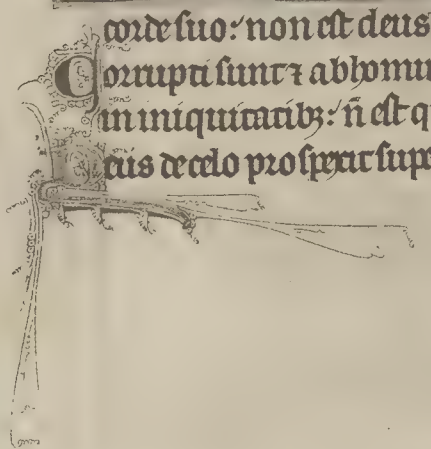 corde suo: non est deus
Corrupti sunt ⁊ abhomi
in iniquitatibꝫ: n̄ est q
eus de celo prospexit sup